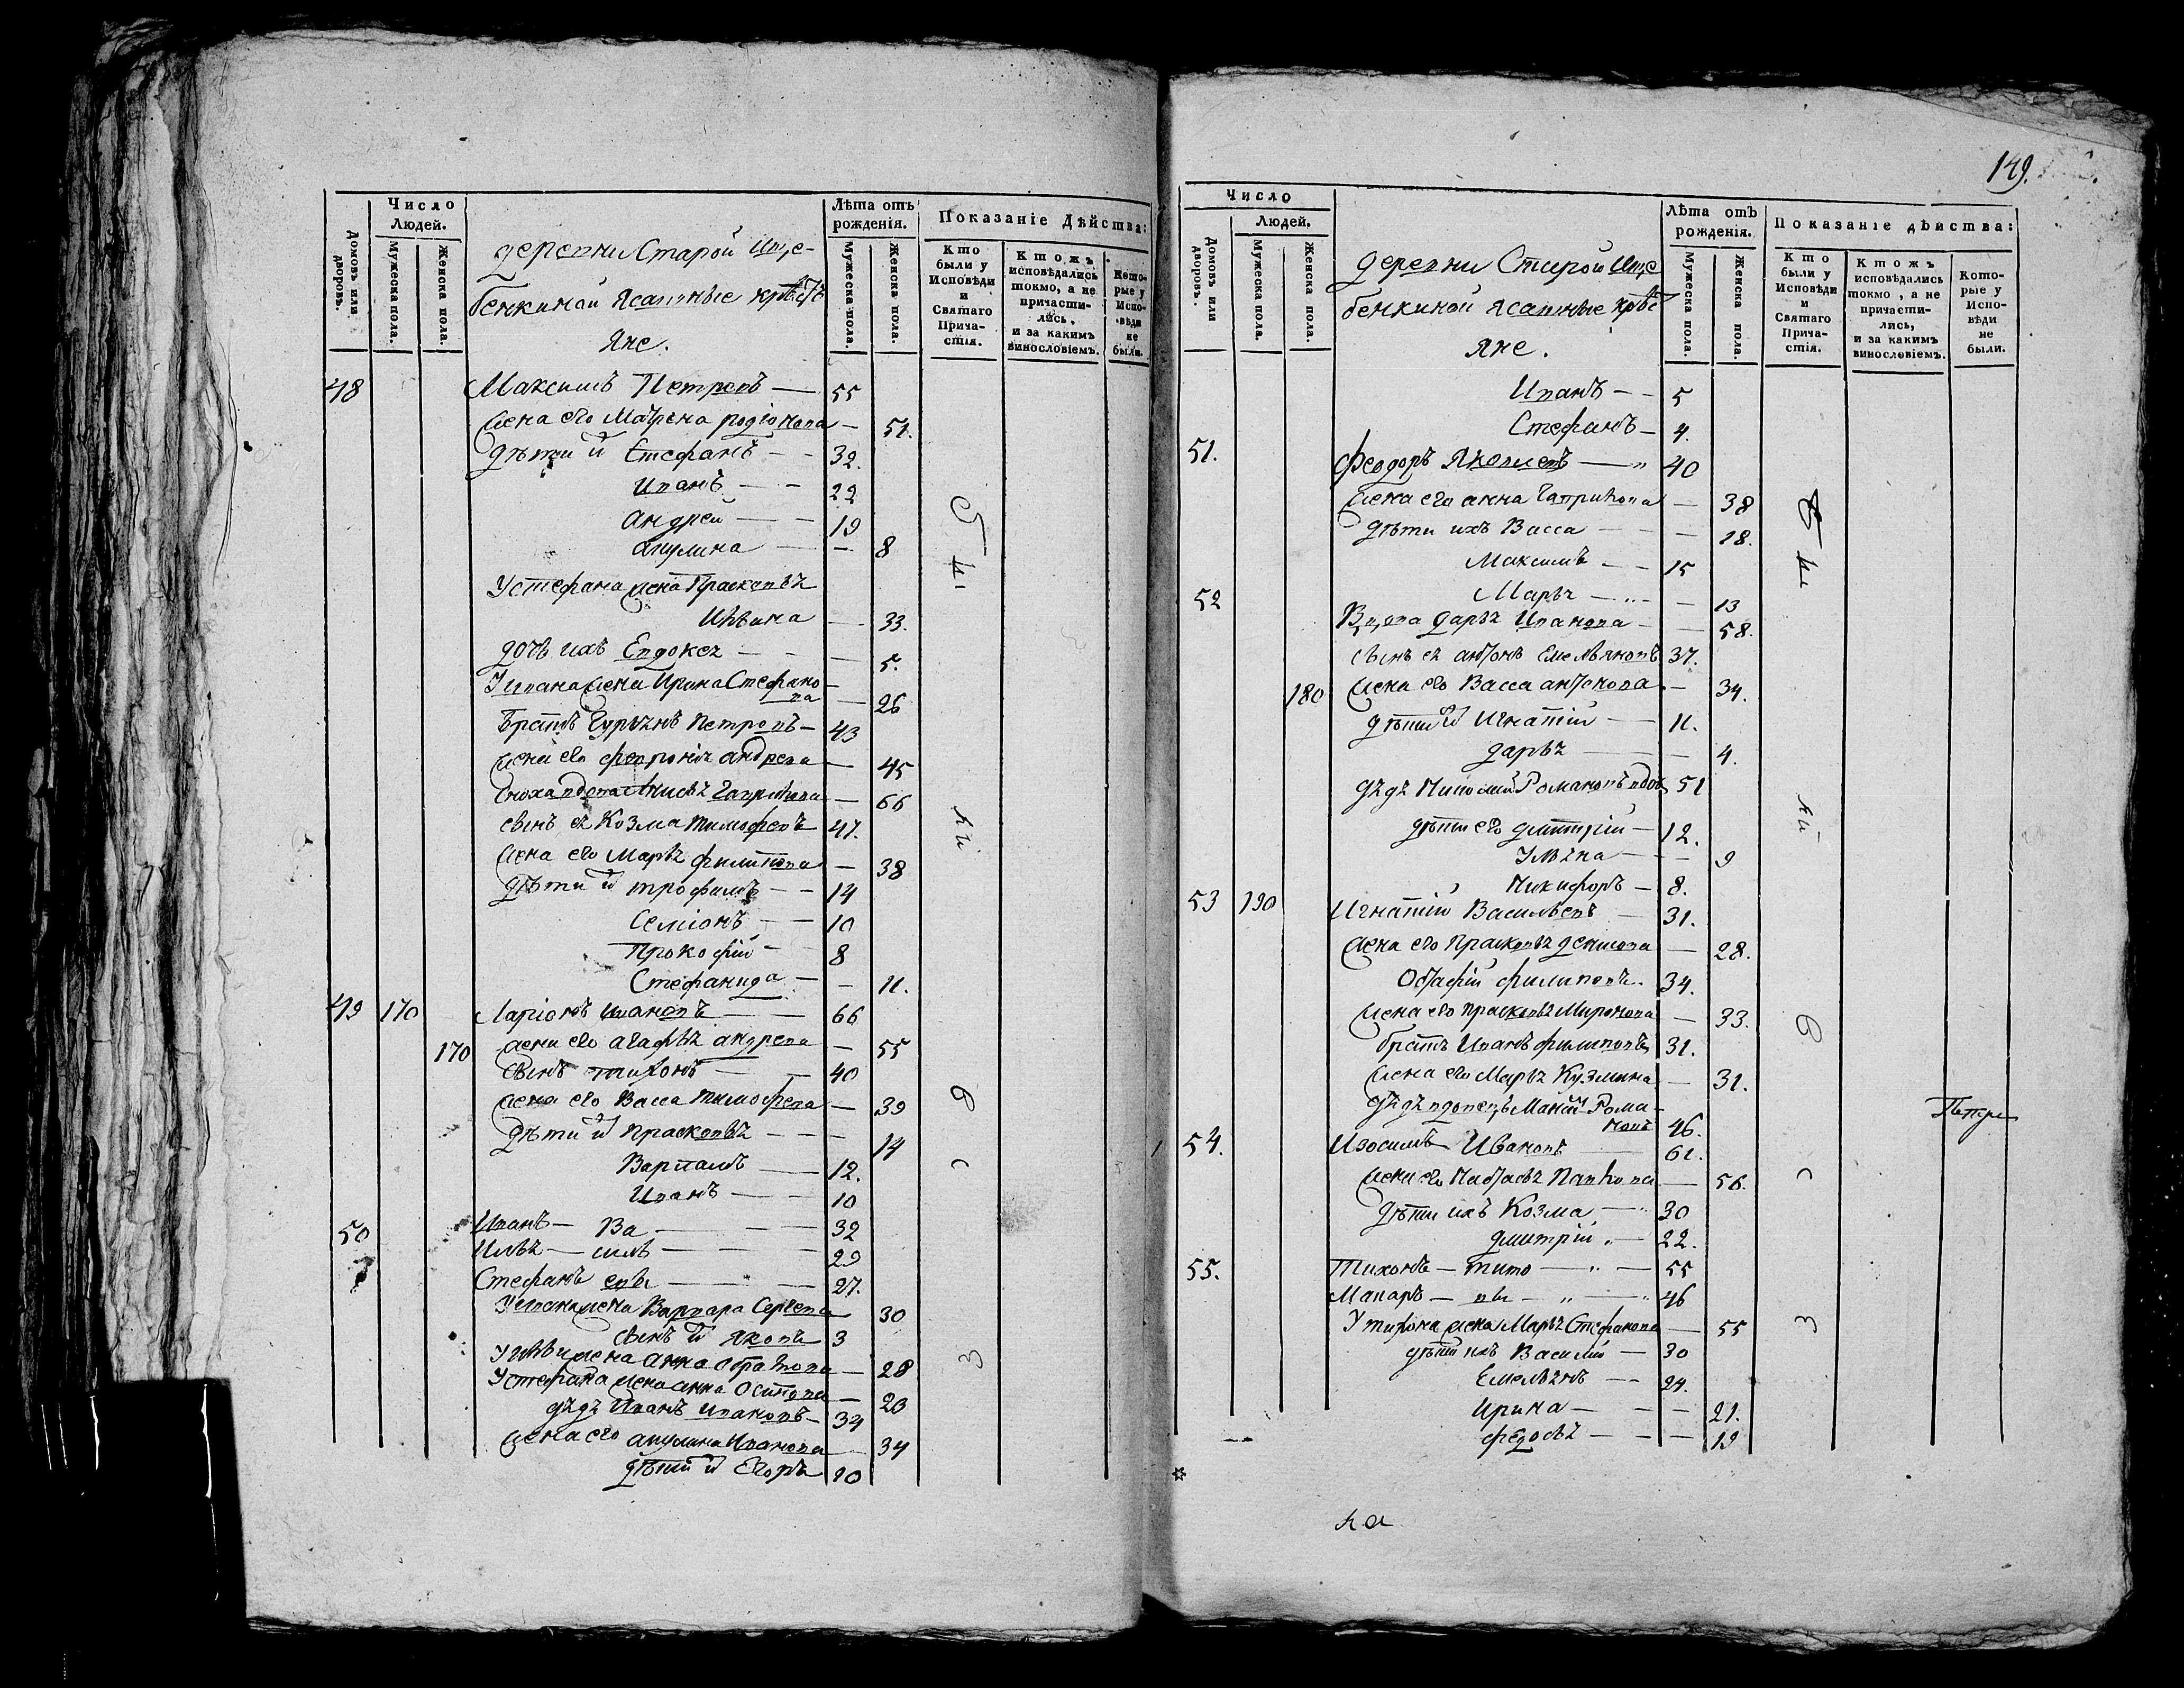 Число Людей.
Домовъ или дворовъ.
Мужеска пола.
Женска пола.
деревни Старой Ище-
бенкиной Ясашные крест
яне.
Лѣта отъ рожденія.
Мужеска пола.
Женска пола.
Показаніе Дѣйства:
Кто были у Исповѣди и Святаго Прича-стія.
Ктожъ исповѣдались токмо, а не причасти-лись, и за какимъ винословіемъ.
Кото-рые у Испо-вѣди не были.
48 Максимъ Петровъ — 55
жена его Матрена родіонова — 51.
дѣти и Стефанъ — 32.
Иванъ — 22
андреи — 19
акулина — 8
У Стефана жена Прасковья
Ильина — 33.
дочь ихъ Евдокея — 5.
У ивана жена Ирина Стефано
ва — 26
братъ Емельянъ Петровъ — 43
жена его февронія андрева — 45
Сноха вдова Анисья Гаврилова — 66
сынъ ея Козма тимофевъ 47.
жена его Марья филиппова — 38
дѣти и трофимъ — 14
Семіонъ — 10
Прокофій — 8
Стефанида — 11.
49 170 Ларіонъ ивановъ — 66
170 жена его агафья андрева — 55
сынъ тихонъ — 40
жена его Васса тимофева — 39
дѣти и прасковья — 14
Варламъ — 12.
Иванъ — 10
50 Иванъ — Ва — 32
Илья — силь — 29
Стефанъ евы — 27.
У ивана жена Варвара Сергева 30
сынъ и Яковъ 3
У ильи жена анна — 28
У стефана жена анна Осипова — 23
дядя Иванъ ивановъ — 34
жена его акулина Иванова — 34
дѣти и Егоръ 10
149.
Число
Людей.
Домовъ или дворовъ.
Мужеска пола.
Женска пола.
деревни Старой Ище
бенкиной Ясашные крест
яне.
Лѣта отъ рожденія.
Мужеска пола.
Женска пола.
Показаніе дѣйства:
Кто были у Исповѣди и Святаго Прича-стія.
Ктожъ исповѣдались токмо, а не причасти-лись, и за какимъ винословіемъ.
Кото-рые у Испо-вѣди не были.
Иванъ — 5
Стефанъ — 4.
51. феодоръ Яковлевъ — 40
жена его анна Гаврилова — 38
дѣти ихъ Васса — 18.
Максимъ — 15
Марья — 13
52 Вдова дарья Иванова — 58.
сынъ ея антонъ Емельяновъ 37.
180 жена его Васса антонова — 34.
дѣти и Игнатій — 11.
дарья — 4.
дядя Николай Романовъ вдовъ 51
дѣти его дмитрій — 12.
Ульяна — 9
Никифоръ — 8.
53 190 Игнатій Васильевъ — 31.
жена его Прасковья денисова — 28.
филиповъ 34.
жена его прасковья Миронова — 33.
братъ Иванъ филиповъ 31.
жена его Марья Кузмина — 31.
дядя вдовецъ Рома-
новъ 46.
54. Изосимъ Ивановъ — 61.
жена его Настасья Павлова — 56.
дѣти ихъ Козма — 30
дмитрій — 22.
55. Тихонъ — тито — 55
Макаръ — вы — 46
У тихона жена Марья Стефанова — 55
дѣти ихъ Василій — 30
Емельянъ — 24.
Ирина — 21.
федосья — 19